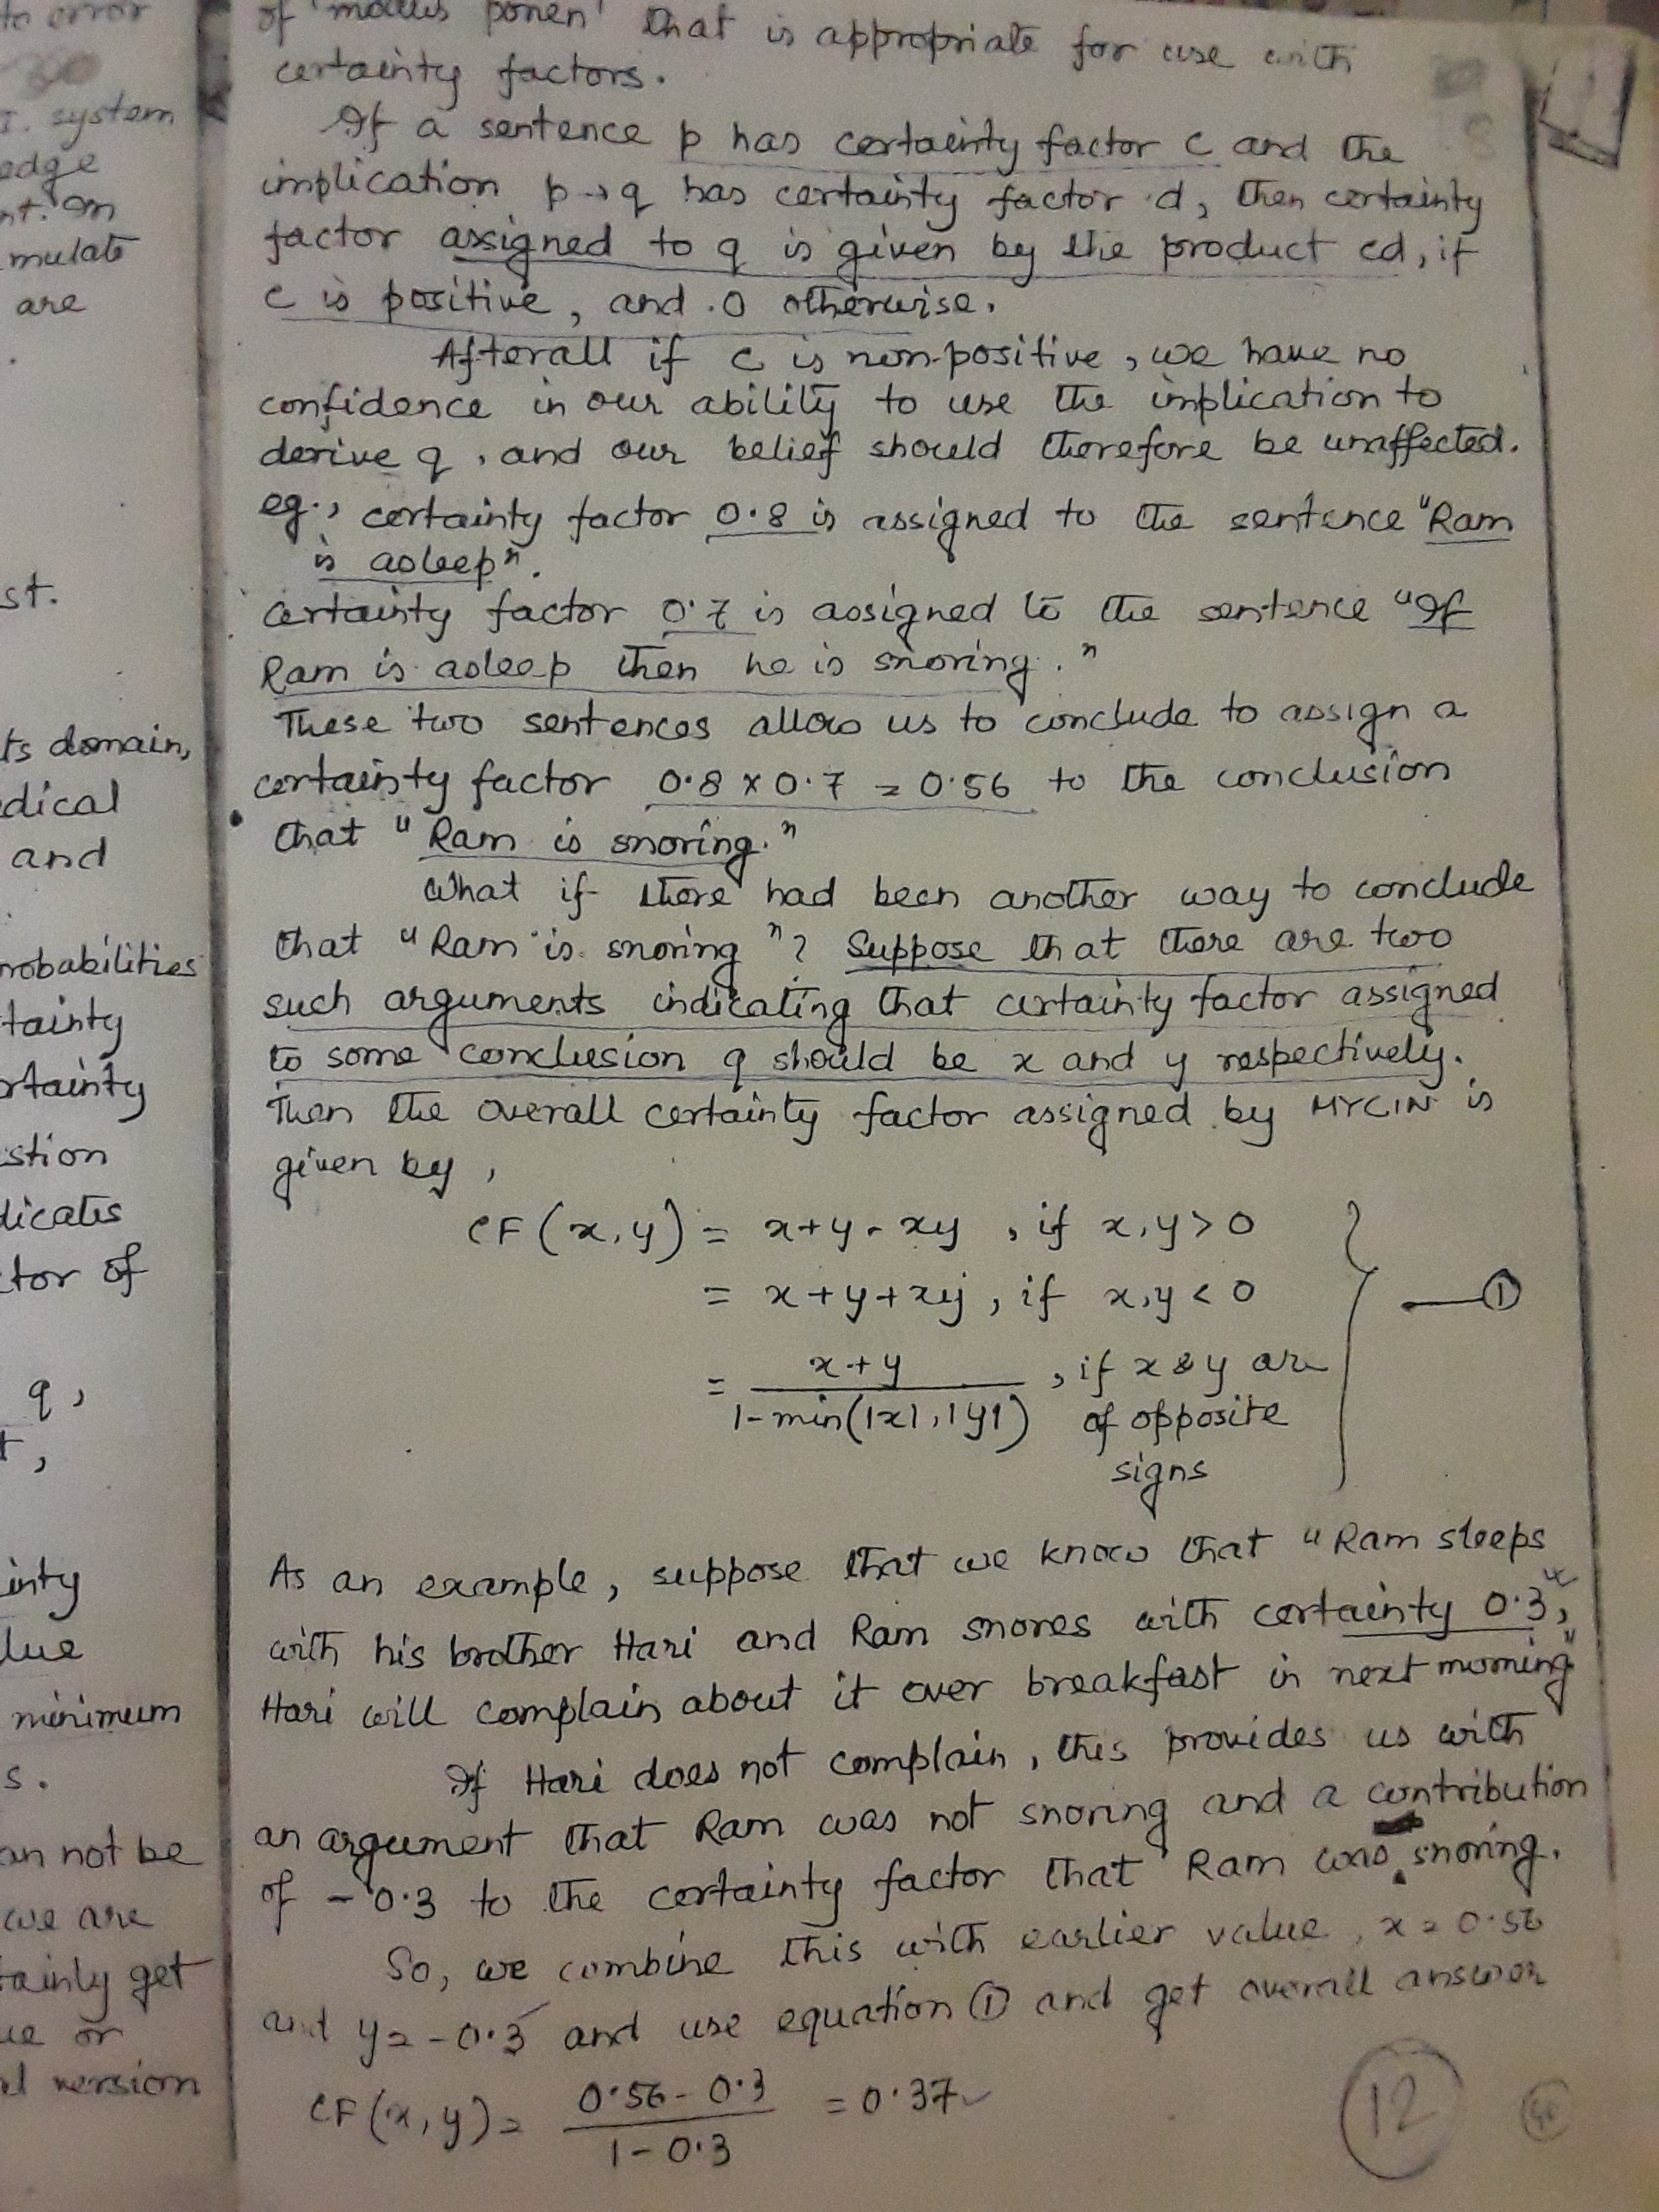 to error
I. system
edge
nt. In
mulate
are
.
st.
ts domain,
dical
and
robabilities
tainty
rtainty
stion
dicates
ctor of
q,
t,
inty
lue
minimum
s.
an not be
we are
tainly get
ue or
version
of 'modus ponen' that is appropriate for use with
certainty factors.
If a sentence p has certainty factor c and the
implication p→q has certainty factor d, then certainty
factor assigned to q is given by the product cd, if
c is positive, and 0 otherwise.
Afterall if c is non-positive, we have no
confidence in our ability to use the implication to
derive q, and our belief should therefore be unaffected.
eg., certainty factor 0.8 is assigned to the sentence "Ram
is asleep".
certainty factor 0.7 is assigned to the sentence "If
Ram is asleep then he is snoring."
These two sentences allow us to conclude to assign a
certainty factor 0.8 x 0.7 = 0.56 to the conclusion
that "Ram is snoring."
What if there had been another way to conclude
that "Ram is snoring"? Suppose that there are two
such arguments indicating that certainty factor assigned
to some conclusion q should be x and y respectively.
Then the overall certainty factor assigned by MYCIN is
given by,
CF(x,y) = x+y-xy, if x,y>0
= x+y+xy, if x,y<0 ①
= x+y , if x & y are
1-min(|x|,|y|) of opposite
signs
As an example, suppose that we know that "Ram sleeps
with his brother Hari and Ram snores with certainty 0.3,"
Hari will complain about it over breakfast in next morning"
If Hari does not complain, this provides us with
an argument that Ram was not snoring and a contribution
of -0.3 to the certainty factor that Ram was snoring.
So, we combine this with earlier value, x = 0.56
and y = -0.3 and use equation ① and get overall answer
CF(x,y) = 0.56-0.3 = 0.37
1-0.3
12